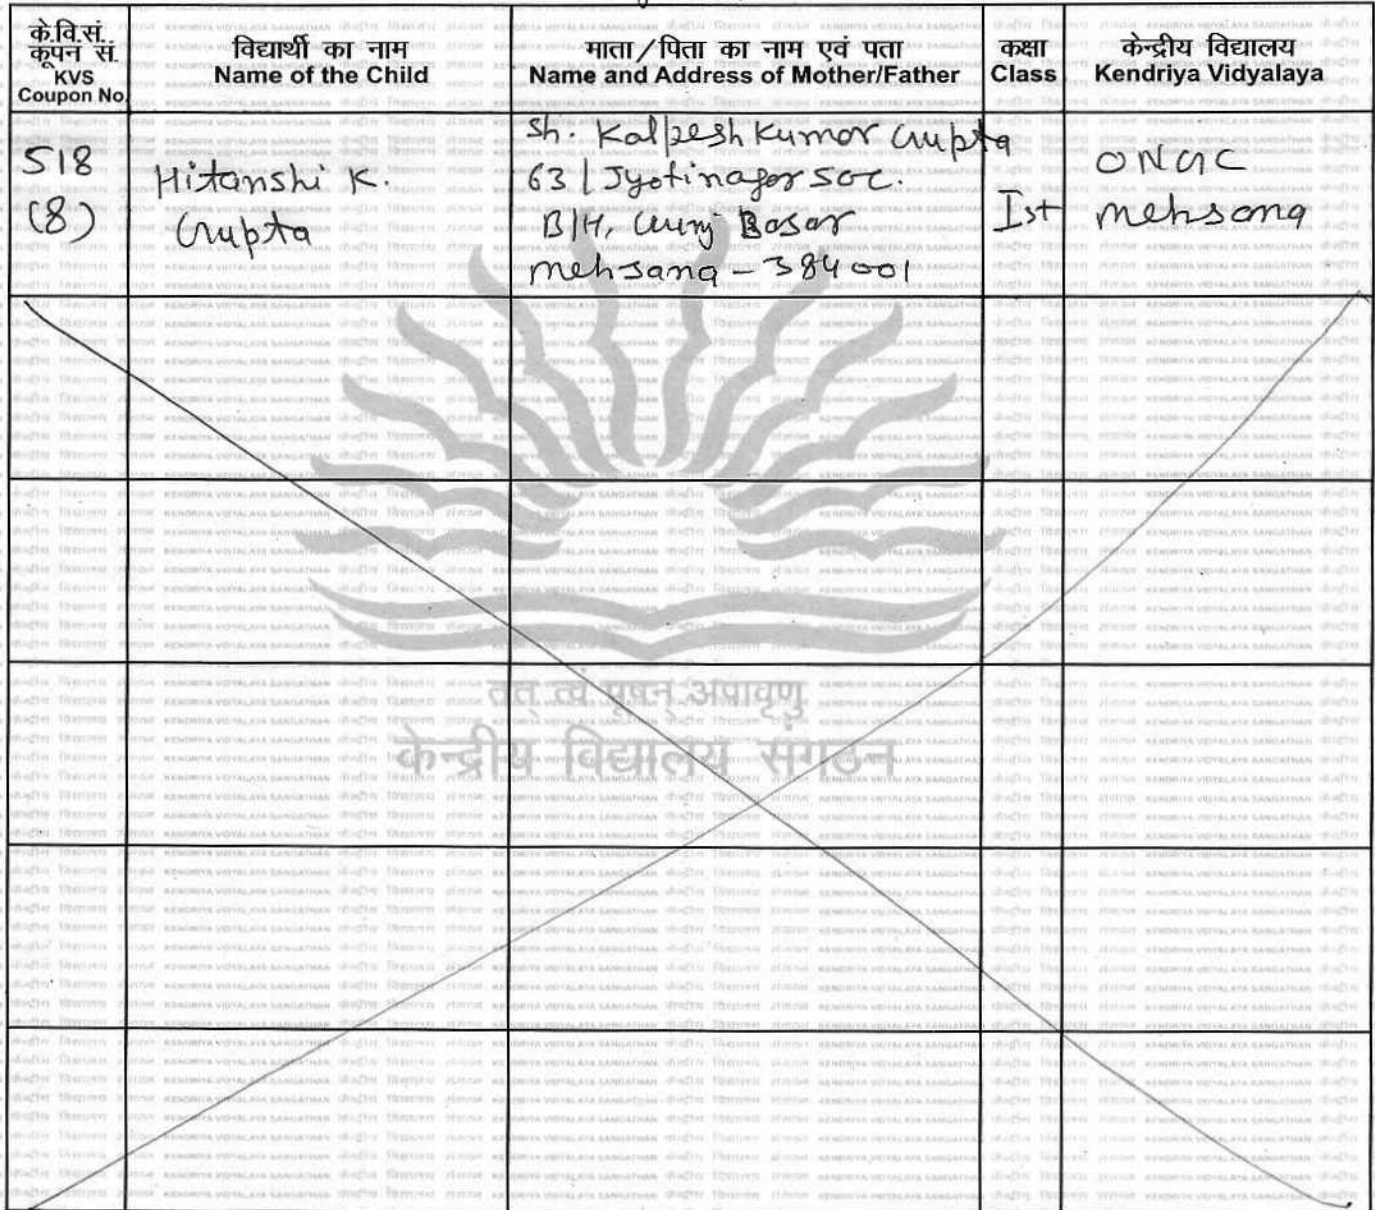 के.वि.सं.
कूपन सं.
KVS
Coupon No.
विद्यार्थी का नाम
Name of the Child
माता/पिता का नाम एवं पता
Name and Address of Mother/Father
कक्षा
Class
केन्द्रीय विद्यालय
Kendriya Vidyalaya
518
(8)
Hitanshi K.
Gupta
Sh. Kalpesh Kumar Gupta
63/Jyotinagar Soc.
B/H, Gunj Basar
Mehsana - 384001
Ist
ONGC
Mehsana
तत् त्वं पूषन् अपावृणु
केन्द्रीय विद्यालय संगठन